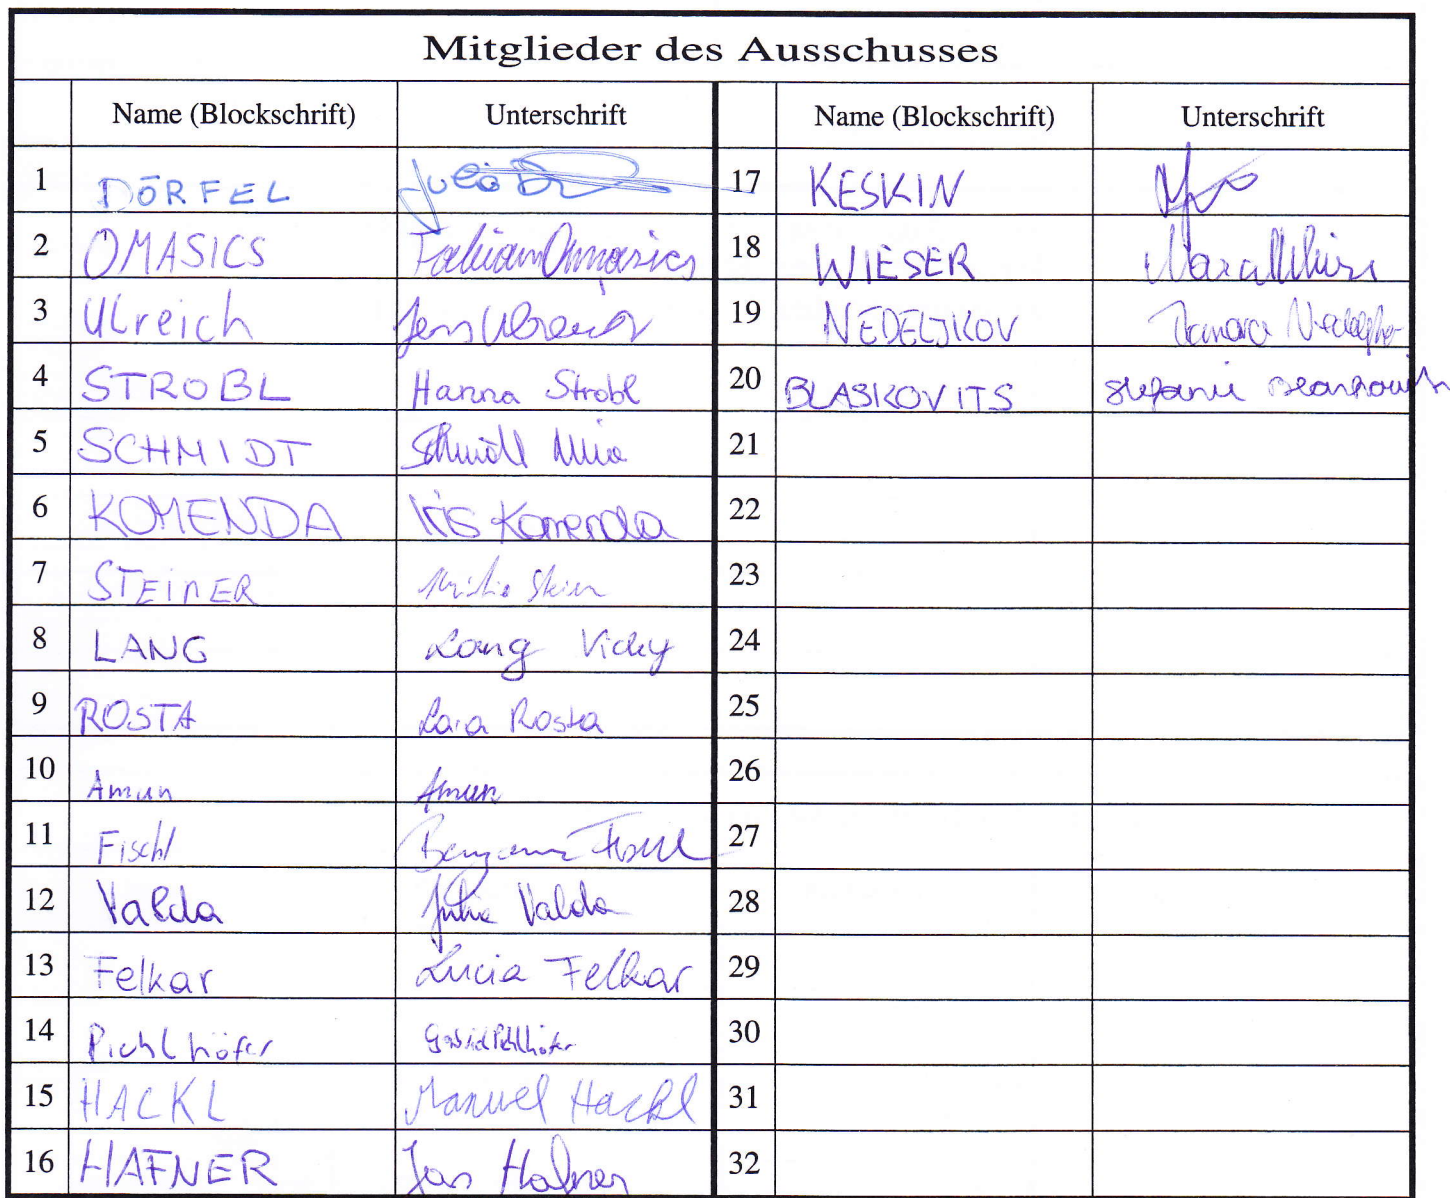 Mitglieder des Ausschusses
Name (Blockschrift) Unterschrift Name (Blockschrift) Unterschrift
1 DÖRFEL Julia 17 KESKIN
2 OMASICS Fabian Omasics 18 WIESER
3 Ulreich Jens Ulreich 19 NEDELJKOV Tamara
4 STROBL Hanna Strobl 20 BLASKOVITS Stefanie Blaskovits
5 SCHMIDT Schmidt Mia 21
6 KOMENDA Iris Komenda 22
7 STEinER 23
8 LANG Lang Vicky 24
9 ROSTA Lara Rosta 25
10 Amun Amun 26
11 Fischl Benjamin Fischl 27
12 Valda Julia Valda 28
13 Felkar Lucia Felkar 29
14 Pichlhöfer Gabriel Pichlhöfer 30
15 HACKL Manuel Hackl 31
16 HAFNER Jan Hafner 32